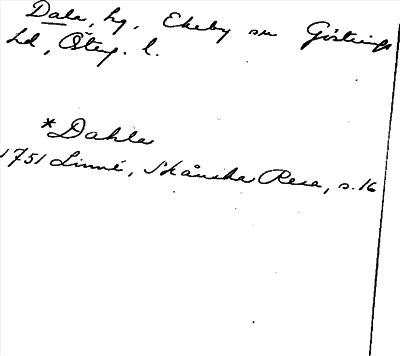 Dala, hg, Ekeby sn Göstrings
hd, Östg. l.
*Dahla
1751 Linné, Skånska Resa, s. 16